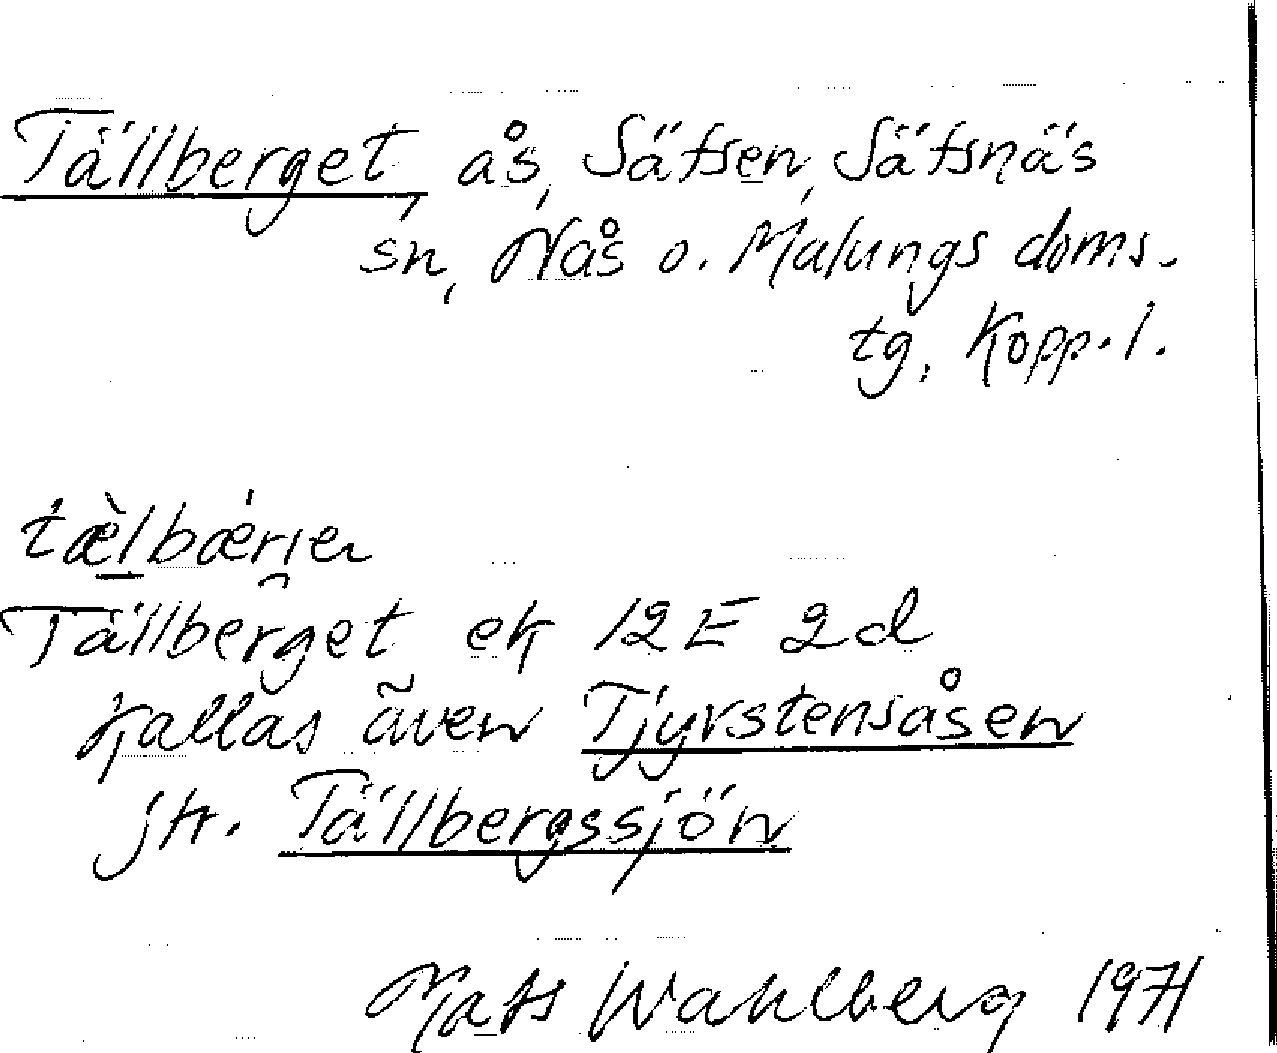 Tällberget, ås, Säfsen, Säfsnäs
sn, Nås o. Malungs doms-
tg, Kopp. l.
tæ̀lbærjeṇ
Tällberget ek 12E 2d
kallas även Tjyvstensåsen
jfr. Tällbergssjön
Mats Wahlberg 1971